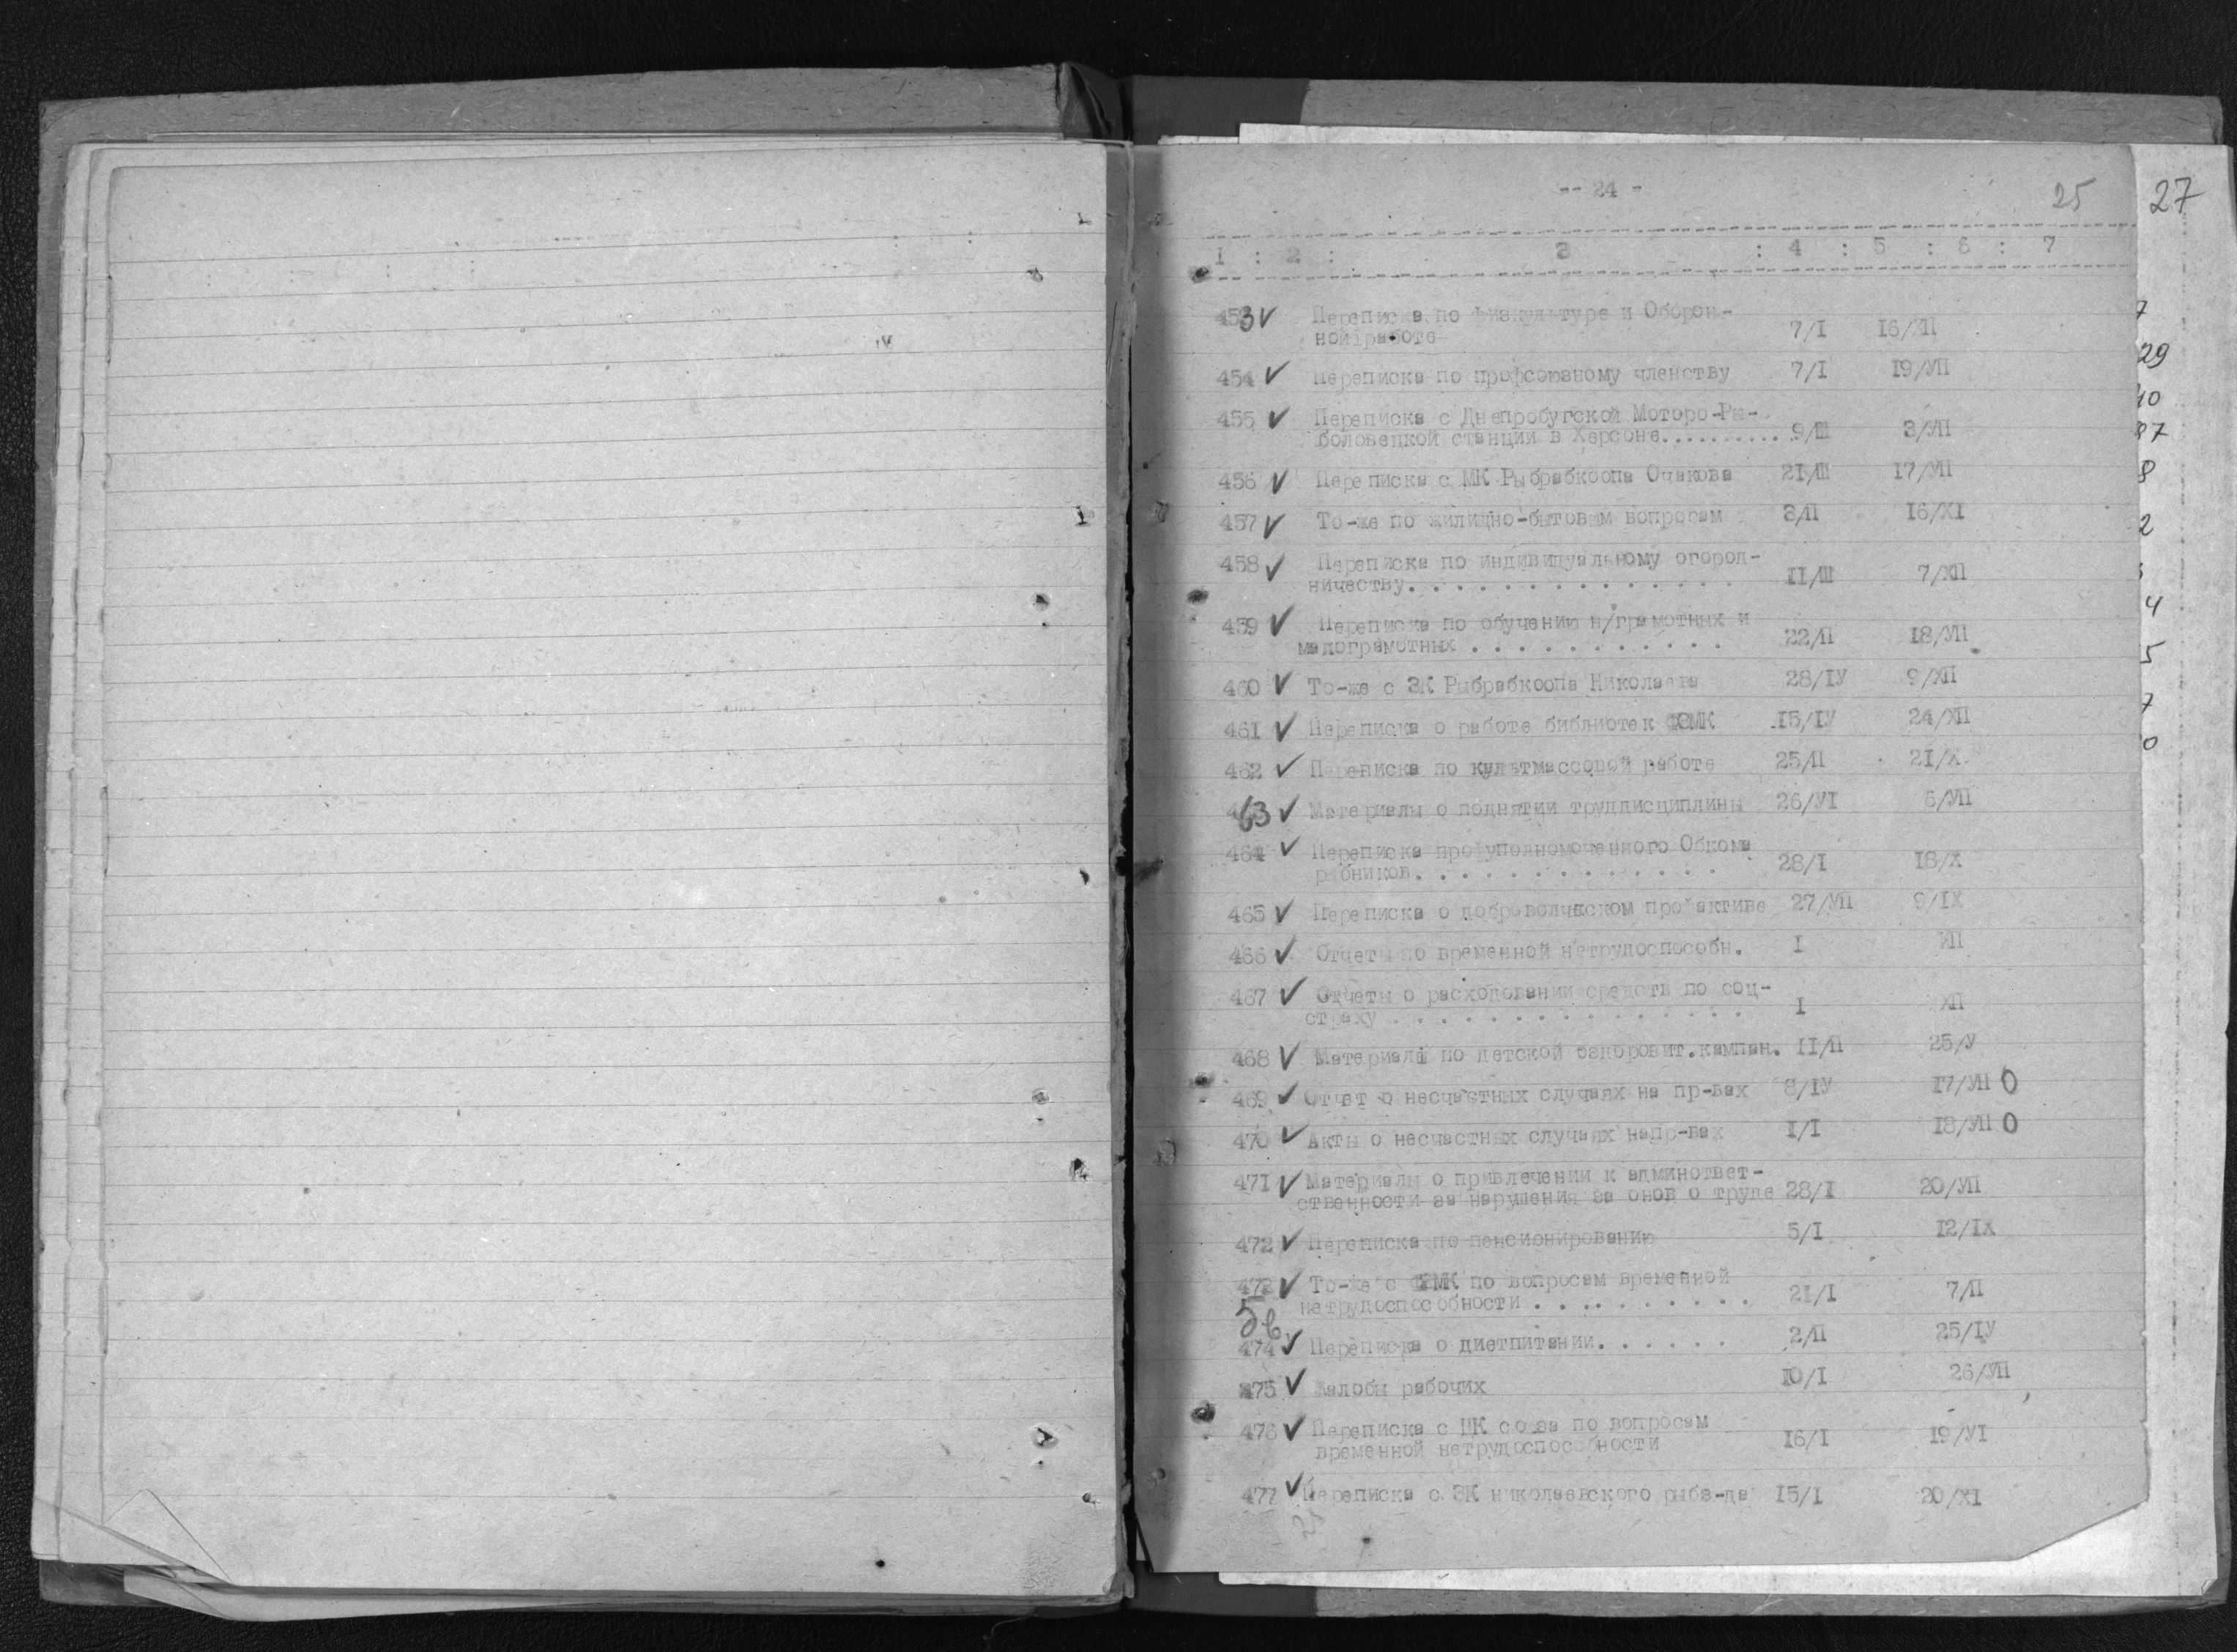 -- 24 -
25
27
I : 2 : 3 : 4 : 5 : 6 : 7
453 ✓ Переписка по физкультуре и Оборон-
ной работе 7/I 16/ХП
454 ✓ Переписка по профсоюзному членству 7/I 19/УП
455 ✓ Переписка с Днепробугской Моторо-Ры-
боловецкой станции в Херсоне.......... 9/Ш 3/УП
456 ✓ Переписка с МК Рыбрабкоопа Очакова 21/Ш 17/УП
457 ✓ То-же по жилищно-бытовым вопросам 3/П 16/XI
458 ✓ Переписка по индивидуальному огород-
ничеству. . . . . . . . . . . . . . 11/Ш 7/ХП
459 ✓ Переписка по обучению н/грамотных и
малограмотных . . . . . . . . . . . 22/П 18/УП
460 ✓ То-же с ЗК Рыбрабкоопа Николаева 28/IУ 9/ХП
461 ✓ Переписка о работе библиотек ФЗМК 15/IУ 24/ХП
462 ✓ Переписка по культмассовой работе 25/П 21/Х
463 ✓ Материалы о поднятии труддисциплины 26/УI 6/УП
464 ✓ Переписка профуполномоченного Обкома
рабников. . . . . . . . . . . . . 28/I 18/Х
465 ✓ Переписка о добровольческом профактиве 27/УП 9/IX
466 ✓ Отчеты по временной нетрудоспособн. I ХП
467 ✓ Отчеты о расходовании средств по соц-
страху . . . . . . . . . . . . . . . I ХП
468 ✓ Материалы по детской оздоровит.кампан. 11/П 25/У
469 ✓ Отчет о несчастных случаях на пр-вах 8/IУ 17/УП 0
470 ✓ Акты о несчастных случаях напр-вах I/I 18/УП 0
471 ✓ Материалы о привлечении к админответ-
ственности за нарушения за онов о труде 28/I 20/УП
472 ✓ Переписка по пенсионированию 5/I 12/IX
473 ✓ То-же с ФЗМК по вопросам временной
нетрудоспособности . . . . . . . . . . 21/I 7/П
474 ✓ Переписка о диетпитании. . . . . . 2/П 25/IУ
475 ✓ Жалобы рабочих 10/I 26/УП
476 ✓ Переписка с ЦК союза по вопросам
временной нетрудоспособности 16/I 19/УI
477 ✓ Переписка с ЗК николаевского рыбз-да 15/I 20/XI